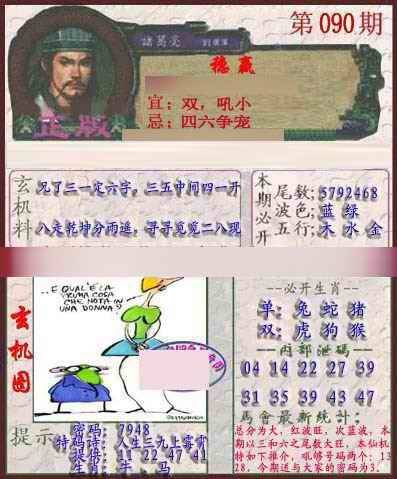 第090期
諸葛亮
稳赢
宜：双，吼小
忌：四六争宠
正版
玄机料
兄了三一定六字，三五中间四一开
八走乾坤分雨遥，寻寻觅觅二八现
本期必开
尾数；5792468
波色；蓝 绿
五行；木 水 金
玄机图
..E QUAL'È LA
PRIMA COSA
CHE NOTA IN
UNA DONNA?
--必开生肖--
单：兔 蛇 猪
双：虎 狗 猴
--内部泄码--
04 14 22 27 39
31 35 39 43 47
馬會最新统计：
总分为大，红波旺，次蓝波，本
期以三和六之尾数大旺，本仙机
特如下推介，吼够号码两个：13
28，今期送与大家的密码为3.
提示
密码：7948
特码诗：人生三九上霄霄
提倍：11 22 47 41
生肖：牛 马